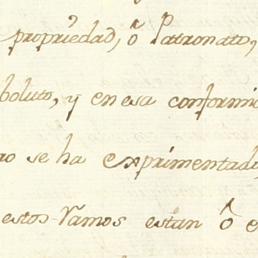 propriedad, ô Patronato,
boluto, y en esa conformi
ro se ha exprimentad
estos Ramos estan ô e